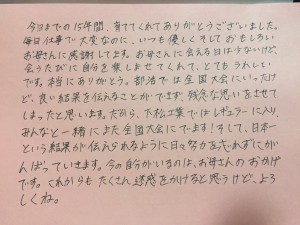 今日までの15年間、育ててくれてありがとうございました。
毎日仕事で大変なのに、いつも優しくそしておもしろい
お母さんに感謝してます。お母さんに会える日は少ないけど、
会うたびに自分を楽しませてくれて、とてもうれしい
です。本当にありがとう。部活では全国大会にいったけ
ど、良い結果を伝えることができず、残念な思いをさせて
しまったと思います。だから、下松ではレギュラーに入り、
みんなと一緒にまた全国大会にでます!そして、日本一
という結果が伝えられるように日々努力を忘れずにが
んばっていきます。今の自分がいるのは、お母さんのおかげ
です。これからもたくさん迷惑をかけると思うけど、よろ
しくね。